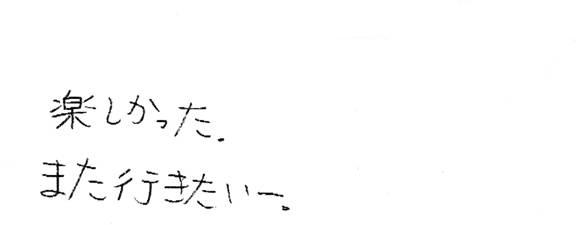 楽しかった.
また行きたいー。